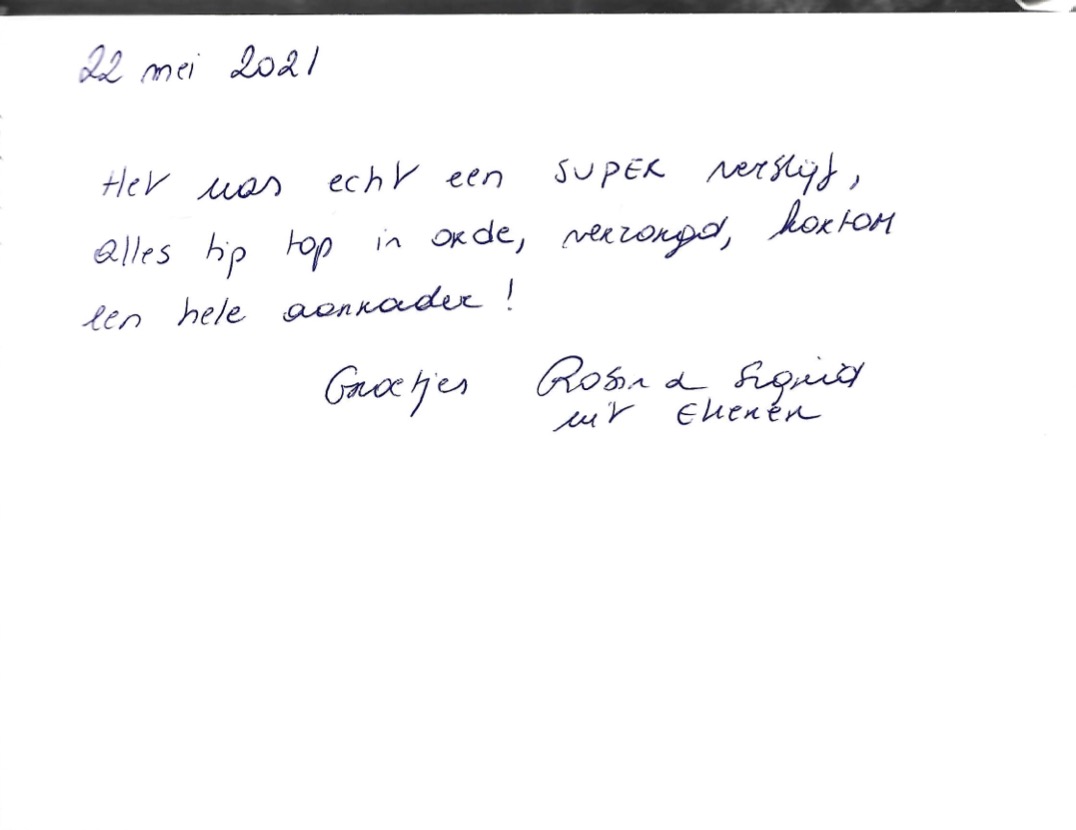 22 mei 2021
Het was echt een SUPER verblijf,
alles tip top in orde, verzorgd, kortom
een hele aanrader!
Groetjes Robin & Sigrid
uit Ekeren